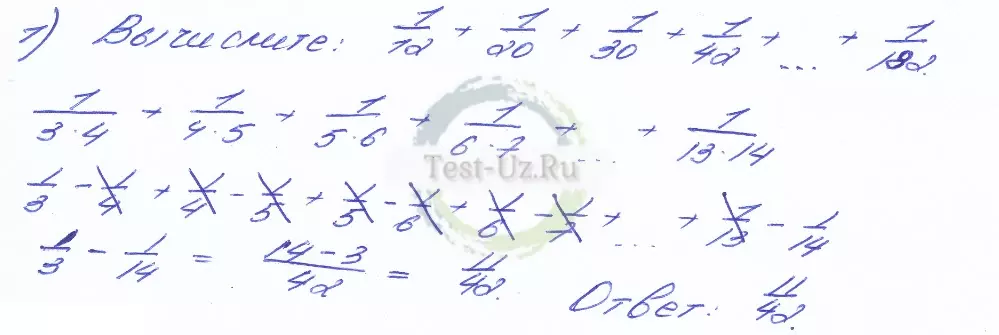 1) Вычислите: 1/12 + 1/20 + 1/30 + 1/42 + ... + 1/182.
1/3·4 + 1/4·5 + 1/5·6 + 1/6·7 + ... + 1/13·14
Test-Uz.Ru
1/3 - 1/4 + 1/4 - 1/5 + 1/5 - 1/6 + 1/6 - 1/7 + ... + 1/13 - 1/14
1/3 - 1/14 = 14-3/42 = 11/42.
Ответ: 11/42.